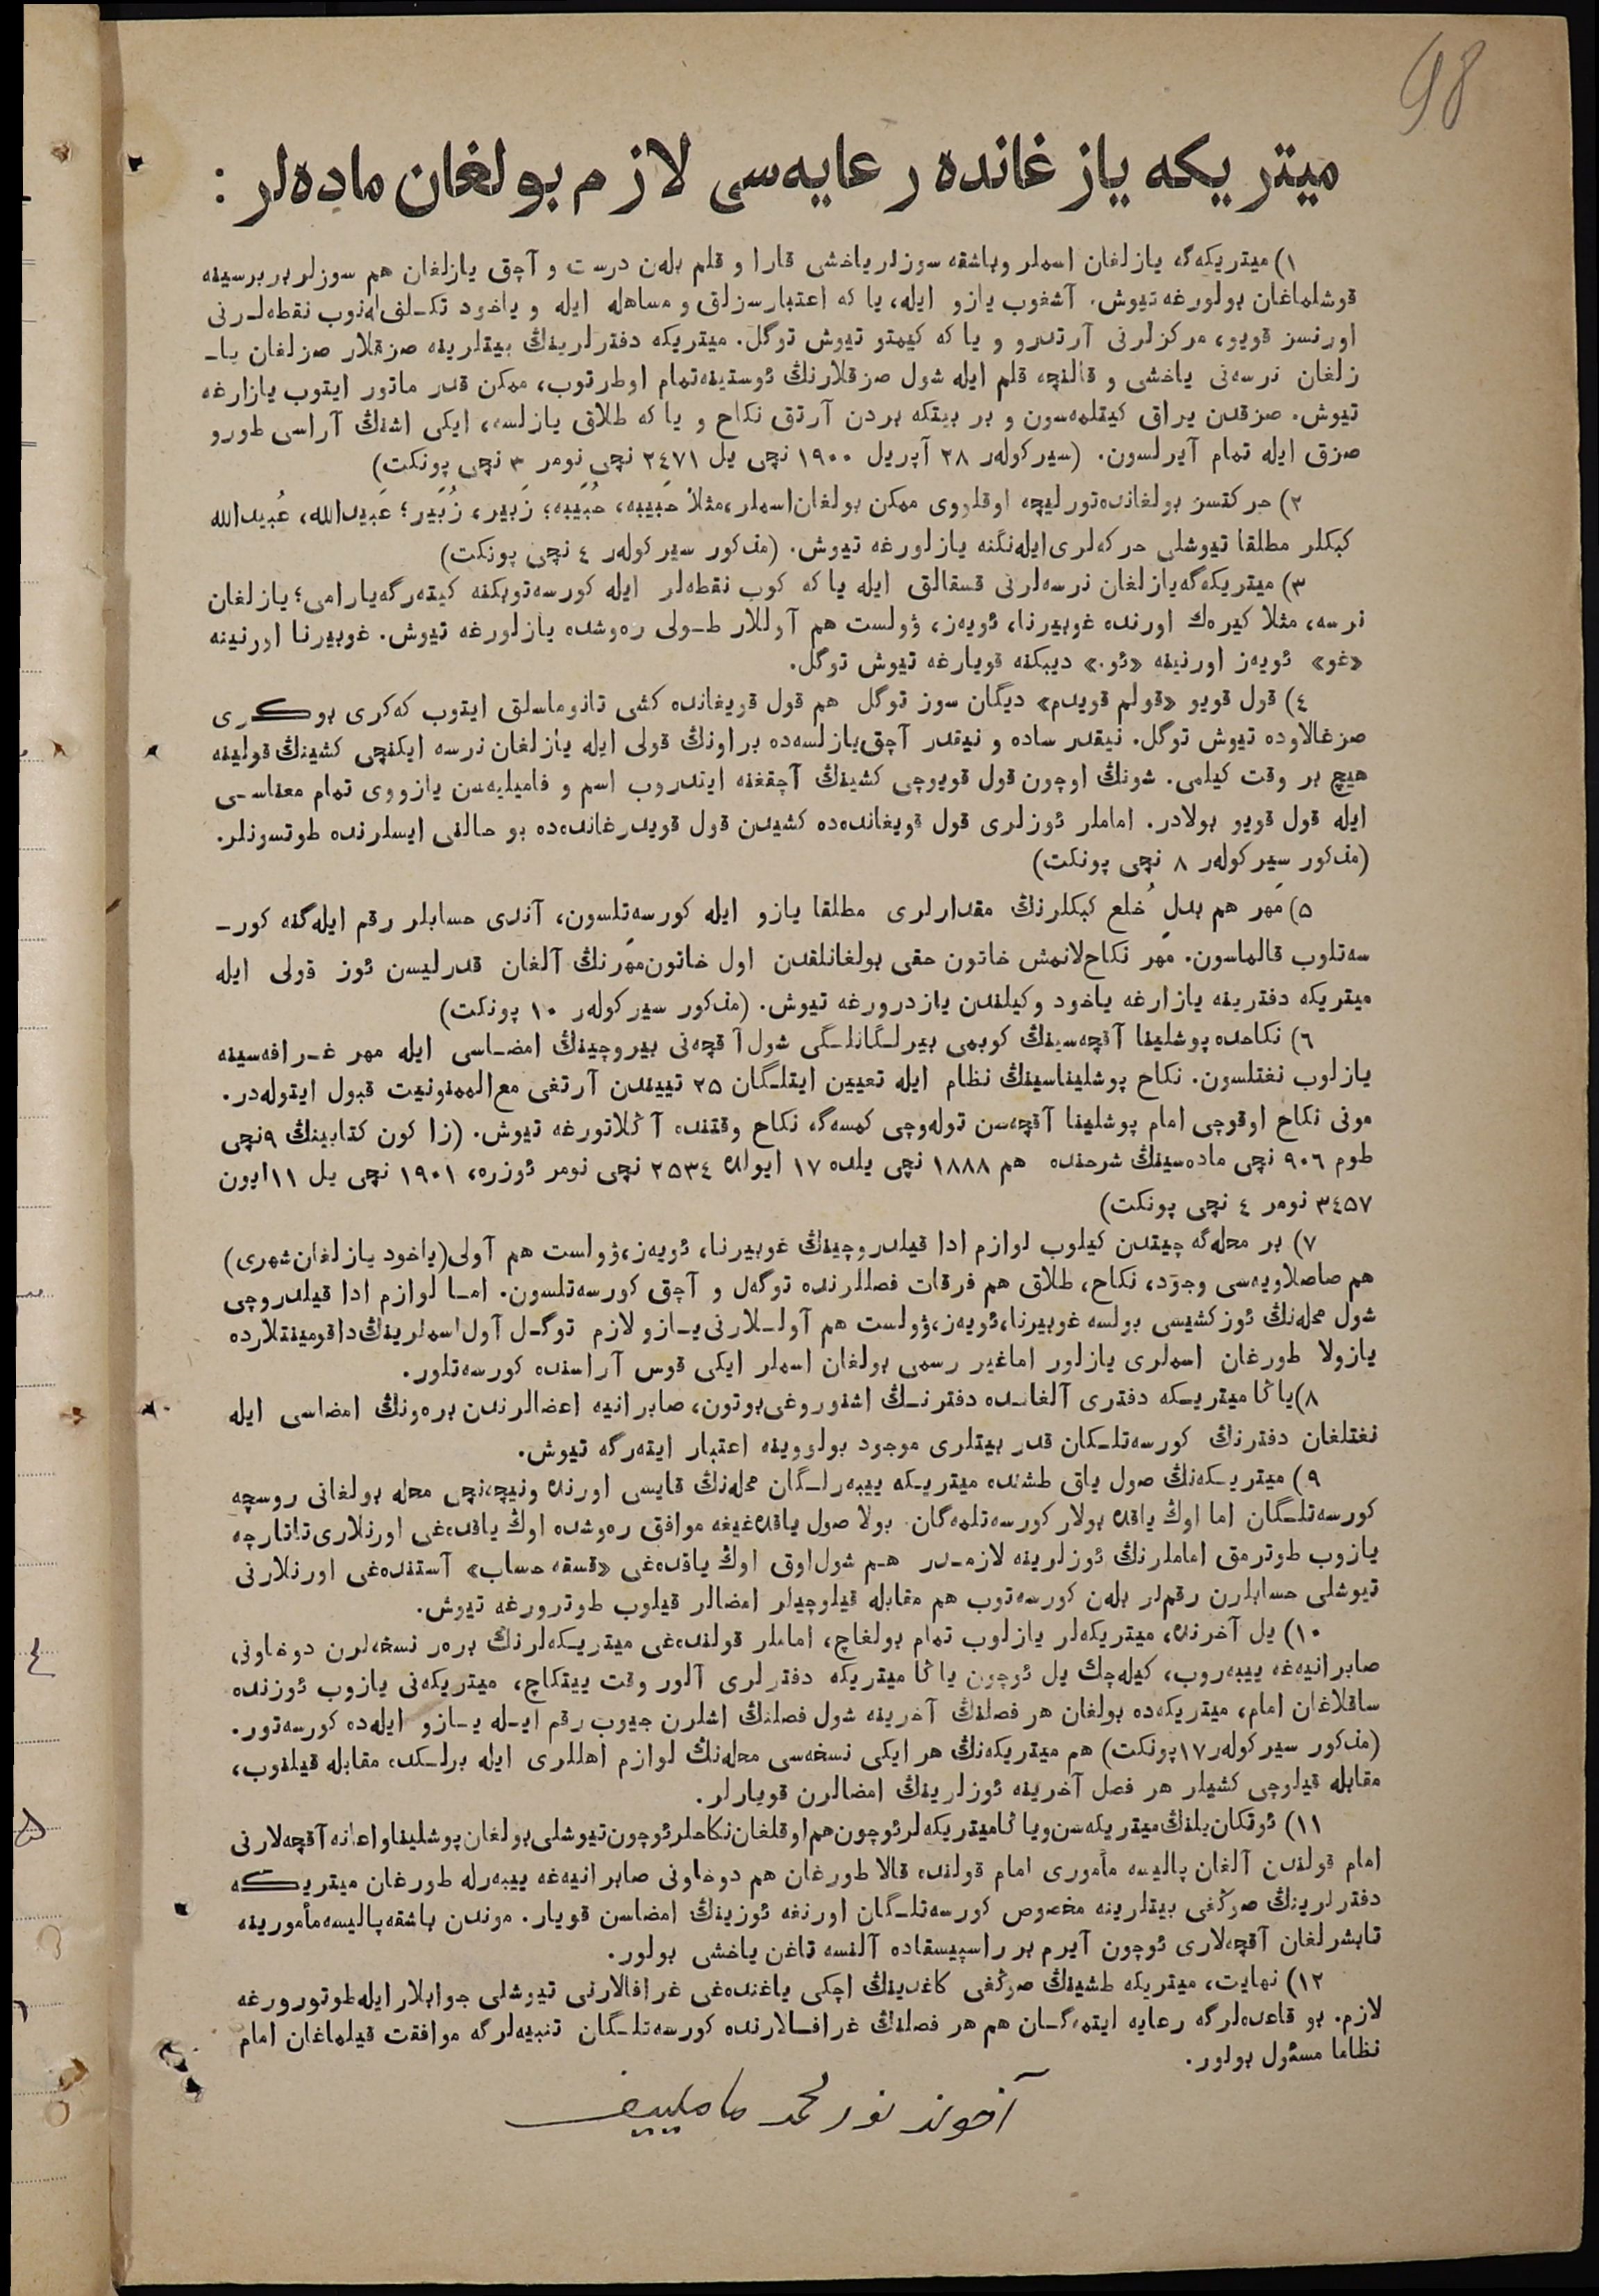 98
ميتريكه يازغانده رعايه‌سى لازم بولغان ماده‌لر :
١) ميتريكه‌گه يازلغان اسملر وباشقه سوزلر ياخشى قارا و قلم بله‌ن درست و آچق يازلغان هم سوزلر بربرسينه
قوشلماغان بولورغه تيوش. آشغوب يازو ايله، يا كه اعتبارسزلق و مساهله ايله و ياخود تكـلف‌له‌نوب نقطه‌لـرنى
اورنسز قويو، مركزلرنى آرتدرو و يا كه كيمتو تيوش توگل. ميتريكه دفترلرينڭ بيتلرينه صزقلار صزلغان يا-
زلغان نرسه‌نى ياخشى و قالنچه قلم ايله شول صزقلارنڭ ئوستينه‌تمام اوطرتوب، ممكن قدر ماتور ايتوب يازارغه
تيوش. صزقدن يراق كيتلمه‌سون و بر بيتكه بردن آرتق نكاح و يا كه طلاق يازلسه، ايكى اشنڭ آراسى طورو
صزق ايله تمام آيرلسون. (سيركوله‌ر ٢٨ آپريل ١٩٠٠ نچى يل ٢٤٧١ نچى نومر ٣ نچى پونكت)
٢) حركتسز بولغانده‌تورليچه اوقلووى ممكن بولغان‌اسملر،مثلاً حَبيبه، حُبَيبه؛ زَبير، زُبَير؛ عَبيدالله، عُبيدالله
كبكلر مطلقا تيوشلى حركه‌لرى‌ايله‌نگنه يازلورغه تيوش. (مذكور سيركوله‌ر ٤ نچى پونكت)
٣) ميتريكه‌گه‌يازلغان نرسه‌لرنى قسقالق ايله يا كه كوب نقطه‌لر ايله كورسه‌توبكنه كيته‌رگه‌يارامى؛ يازلغان
نرسه، مثلا كيره‌ك اورنده غوبيرنا، ئويه‌ز، ۋولست هم آوللار طـولى ره‌وشده يازلورغه تيوش. غوبيرنا اورنينه
«غو» ئويه‌ز اورنينه «ئو.» ديبكنه قويارغه تيوش توگل.
٤) قول قويو «قولم قويدم» ديگان سوز توگل هم قول قويغانده كشى تانوماسلق ايتوب كه‌كرى بوكـرى
صزغالاوده تيوش توگل. نيقدر ساده و نيقدر آچق‌يازلسه‌ده براونڭ قولى ايله يازلغان نرسه ايكنچى كشينڭ قولينه
هيچ بر وقت كيلمى. شونڭ اوچون قول قويوچى كشينڭ آچقغنه ايتدروب اسم و فاميليه‌سن يازووى تمام معناسـى
ايله قول قويو بولادر. اماملر ئوزلرى قول قويغانده‌ده كشيدن قول قويدرغانده‌ده بو حالنى ايسلرنده طوتسونلر.
(مذكور سيركوله‌ر ٨ نچى پونكت)
٥) مَهر هم بدلِ خُلع كبكلرنڭ مقدارلرى مطلقا يازو ايله كورسه‌تلسون، آندى حسابلر رقم ايله‌گنه كور-
سه‌تلوب قالماسون. مَهر نكاح‌لانمش خاتون حقى بولغانلقدن اول خاتون‌مَهرنڭ آلغان قدرليسن ئوز قولى ايله
ميتريكه دفترينه يازارغه ياخود وكيلندن يازدرورغه تيوش. (مذكور سيركوله‌ر ١٠ پونكت)
٦) نكاحده پوشلينا آقچه‌سينڭ كوبمى بيرلـگانلـگى شول‌آقچه‌نى بيروچينڭ امضـاسى ايله مهر غـرافه‌سينه
يازلوب نغتلسون. نكاح پوشليناسينڭ نظام ايله تعيين ايتلـگان ٢٥ تييندن آرتغى مع‌الممنونيت قبول ايتوله‌در.
مونى نكاح اوقوچى امام پوشلينا آقچه‌سن توله‌وچى كمسه‌گه نكاح وقتنده آڭلاتورغه تيوش. (زاكون كتابينڭ ٩نچى
طوم ٩٠٦ نچى ماده‌سينڭ شرحنده هم ١٨٨٨ نچى يلده ١٧ ايولده ٢٥٣٤ نچى نومر ئوزره، ١٩٠١ نچى يل ١١ايون
٣٤٥٧ نومر ٤ نچى پونكت)
٧) بر محله‌گه چيتدن كيلوب لوازم ادا قيلدروچينڭ غوبيرنا، ئويه‌ز،ۋولست هم آولى(ياخود يازلغان‌شهرى)
هم صاصلاويه‌سى وجود، نكاح، طلاق هم فرقات فصللرنده توگه‌ل و آچق كورسه‌تلسون. امـا لوازم ادا قيلدروچى
شول محله‌نڭ ئوزكشيسى بولسه غوبيرنا،ئويه‌ز،ۋولست هم آولـلارنى‌يـازو لازم توگـل آول‌اسملرينڭ‌داقومينتلارده
يازولا طورغان اسملرى يازلور اماغير رسمى بولغان اسملر ايكى قوس آراسنده كورسه‌تلور.
٨)ياڭا ميتريـكه دفترى آلغانـده دفترنـڭ اشنوروغى‌بوتون، صابرانيه اعضالرندن بره‌ونڭ امضاسى ايله
نغتلغان دفترنڭ كورسه‌تلـكان قدر بيتلرى موجود بولووينه اعتبار ايته‌رگه تيوش.
٩) ميتريـكه‌نڭ صول ياق طشنده ميتريـكه ييبه‌رلـگان محله‌نڭ قايسى اورنده ونيچه‌نچى محله بولغانى روسچه
كورسه‌تلـگان اما اوڭ ياقده بولار كورسه‌تلمه‌گان. بولا صول ياقده‌غيغه موافق ره‌وشده اوڭ ياقده‌غى اورنلارى‌تاتارچه
يازوب طوترمق اماملرنڭ ئوزلرينه لازمـدر هـم شول‌اوق اوڭ ياقده‌غى «قسقه حساب» آستنده‌غى اورنلارنى
تيوشلى حسابلرن رقملر بله‌ن كورسه‌توب هم مقابله قيلوچيلر امضالر قيلوب طوترورغه تيوش.
١٠) يل آخرنده، ميتريكه‌لر يازلوب تمام بولغاچ، اماملر قولنده‌غى ميتريـكه‌لرنڭ بره‌ر نسخه‌لرن دوخاونى
صابرانيه‌غه ييبه‌روب، كيله‌چك يل ئوچون ياڭا ميتريكه دفترلرى آلور وقت ييتكاچ، ميتريكه‌نى يازوب ئوزنده
ساقلاغان امام، ميتريكه‌ده بولغان هر فصلنڭ آخرينه شول فصلنڭ اشلرن جيوب رقم ايـله يـازو ايله‌ده كورسه‌تور.
(مذكور سيركوله‌ر١٧پونكت) هم ميتريكه‌نڭ هر ايكى نسخه‌سى محله‌نڭ لوازم اهللرى ايله برلـكده مقابله قيلنوب،
مقابله قيلوچى كشيلر هر فصل آخرينه ئوزلرينڭ امضالرن قويارلر.
١١) ئوتكان‌يلنڭ‌ميتريكه‌سن‌وياڭاميتريكه‌لرئوچون‌هم‌اوقلغان‌نكاحلرئوچون‌تيوشلى‌بولغان‌پوشليناواعانه‌آقچه‌لارنى
امام قولندن آلغان پاليسه مأمورى امام قولنده قالا طورغان هم دوخاونى صابرانيه‌غه ييبه‌رله طورغان ميتريـكه
دفترلرينڭ صوڭغى بيتلرينه مخصوص كورسه‌تلـگان اورنغه ئوزينڭ امضاسن قويار. موندن باشقه‌پاليسه‌مأمورينه
تابشرلغان آقچه‌لارى ئوچون آيرم بر راسپيسقاده آلنسه تاغن ياخشى بولور.
١٢) نهايت، ميتريكه طشينڭ صوڭغى كاغدينڭ اچكى ياغنده‌غى غرافالارنى تيوشلى جوابلارايله‌طوتورورغه
لازم. بو قاعده‌لرگه رعايه ايتمه‌گـان هم هر فصلنڭ غرافـالارنده كورسه‌تلـگان تنبيه‌لرگه موافقت قيلماغان امام
نظاما مسئول بولور.
آخوند نور محمد مامليييف